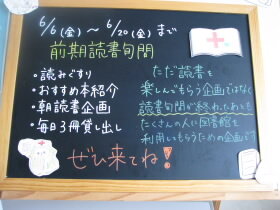 6/6(金)～6/20(金)まで
前期読書旬間
・読みぐすり
・おすすめ本紹介
・朝読書企画
・毎日3冊貸し出し
ただ読書を
楽しんでもらう企画ではなく
読書旬間が終わったあとも
たくさんの人に図書館を
利用してもらうための企画です
ぜひ来てね!